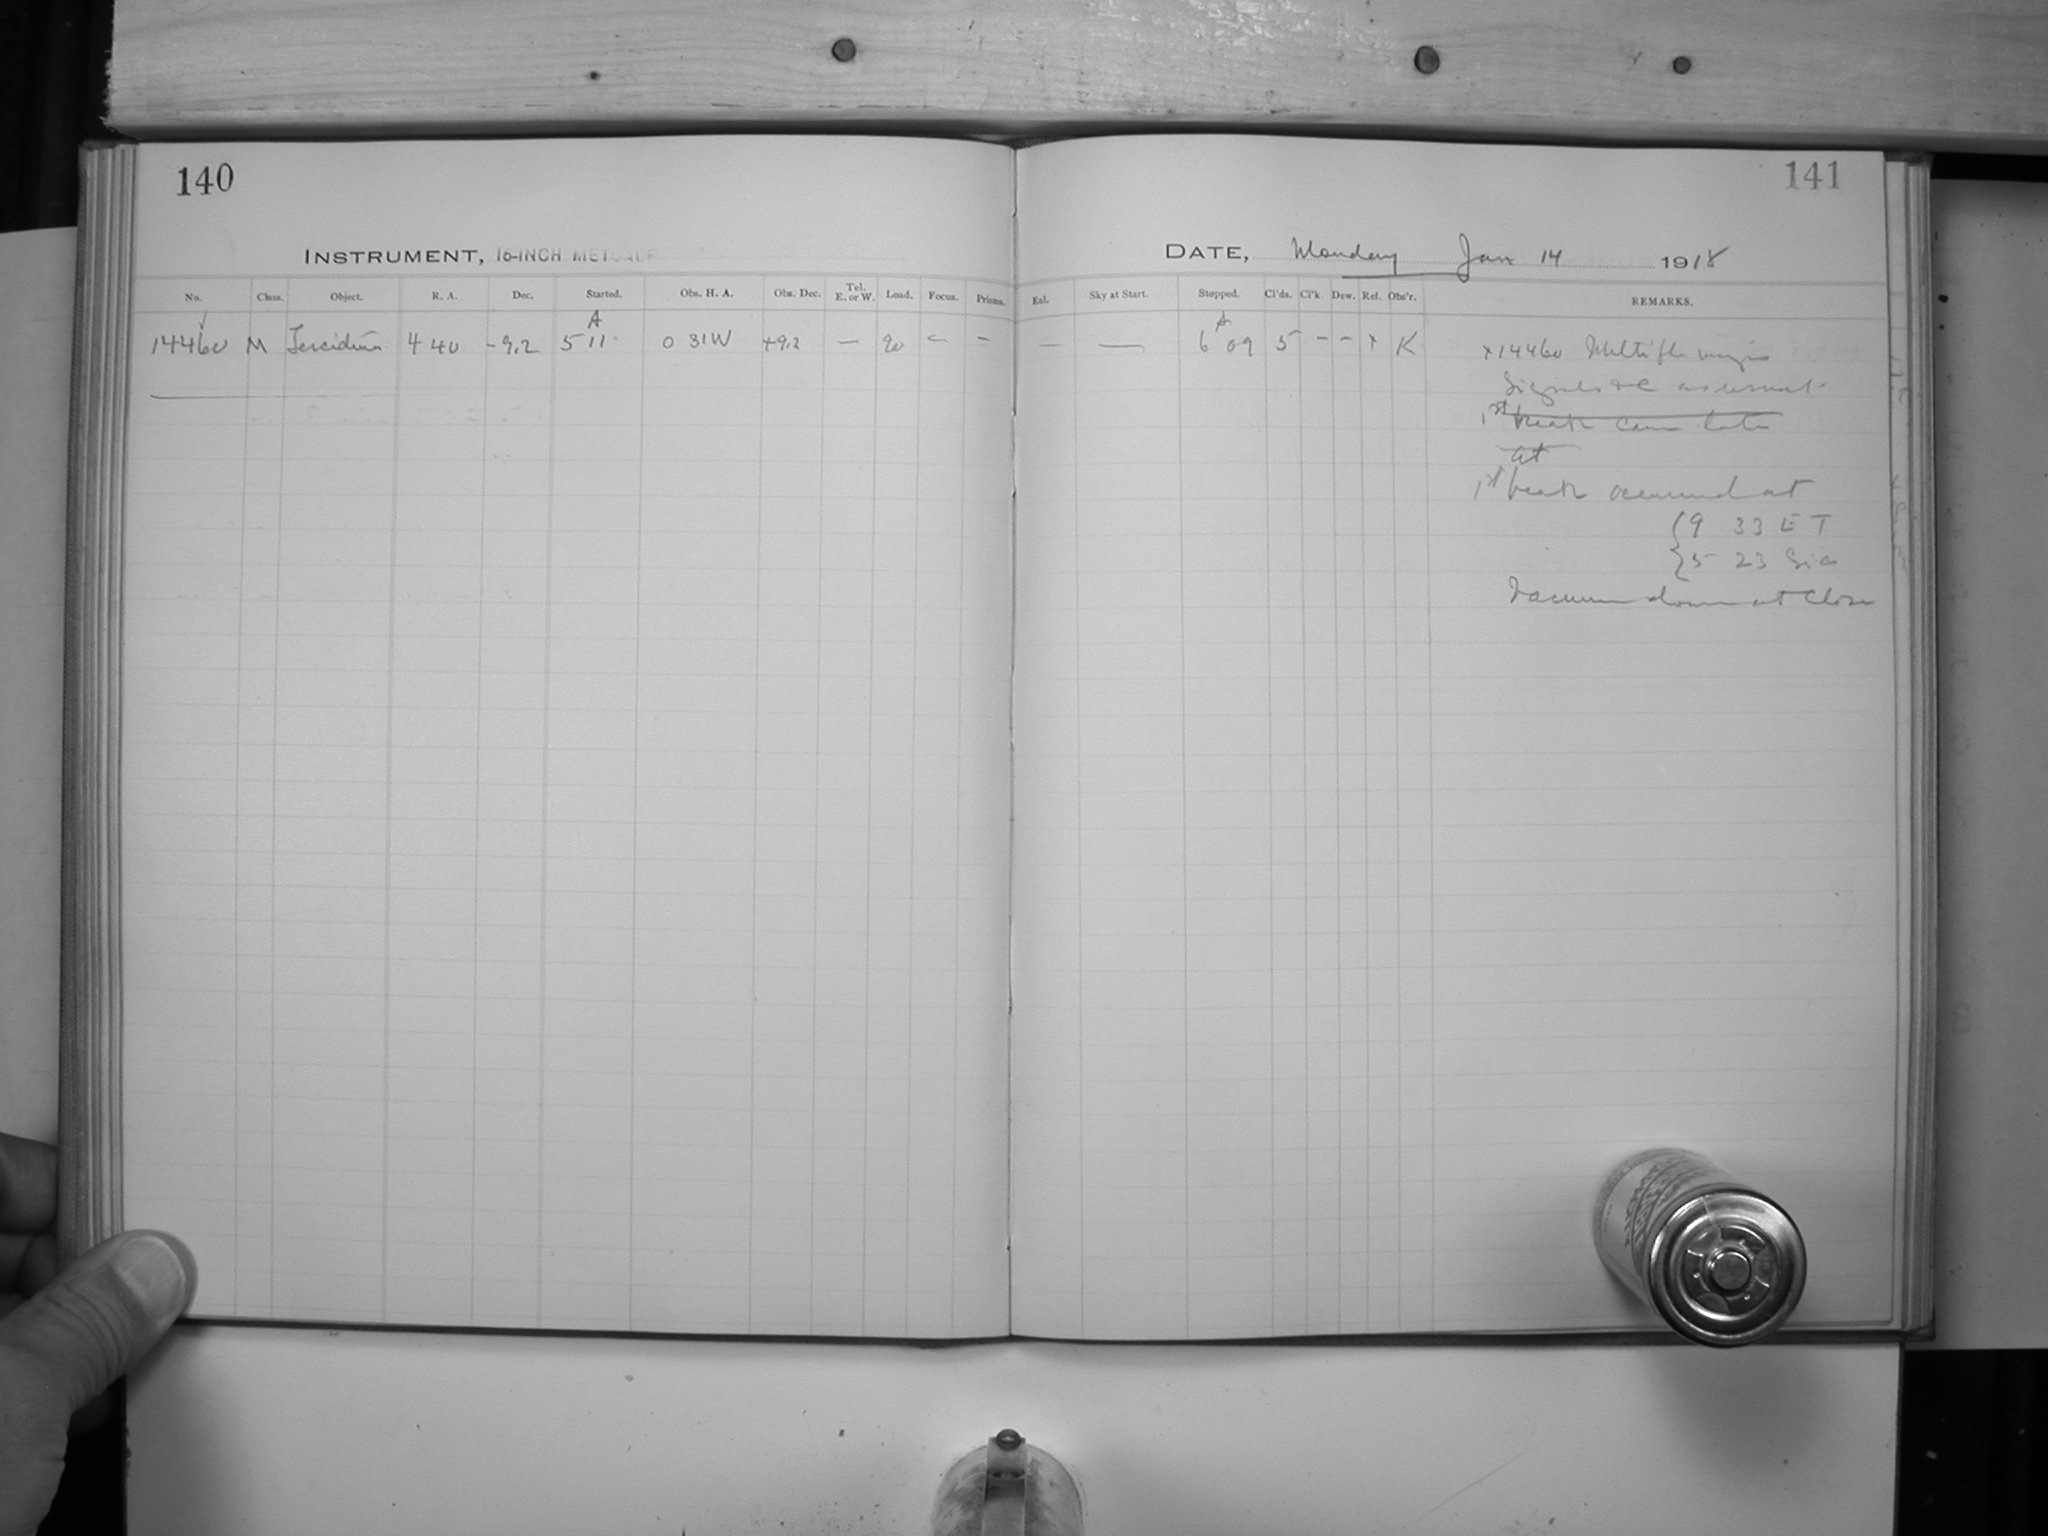 140
141
INSTRUMENT, 16-INCH METCALF
DATE, Monday Jan 14 1918
No. Class. Object. R. A. Dec. Started. Obs. H. A. Obs. Dec. Tel. E. or W. Load. Focus. Prisms. Eal. Sky at Start. Stopped. Cl'ds. Cl'k. Dew. Ref. Obs'r. REMARKS.
A A
14460 M Tercidina 4 40 -9.2 5 11 0 31W +9.2 — 20 - - — — 6 09 5 - - x K x14460 Multiple
Signals as usual
1st break came late
at
1st break occurred at
9 33 E T
5 23 Sid
Vacuum down at Close